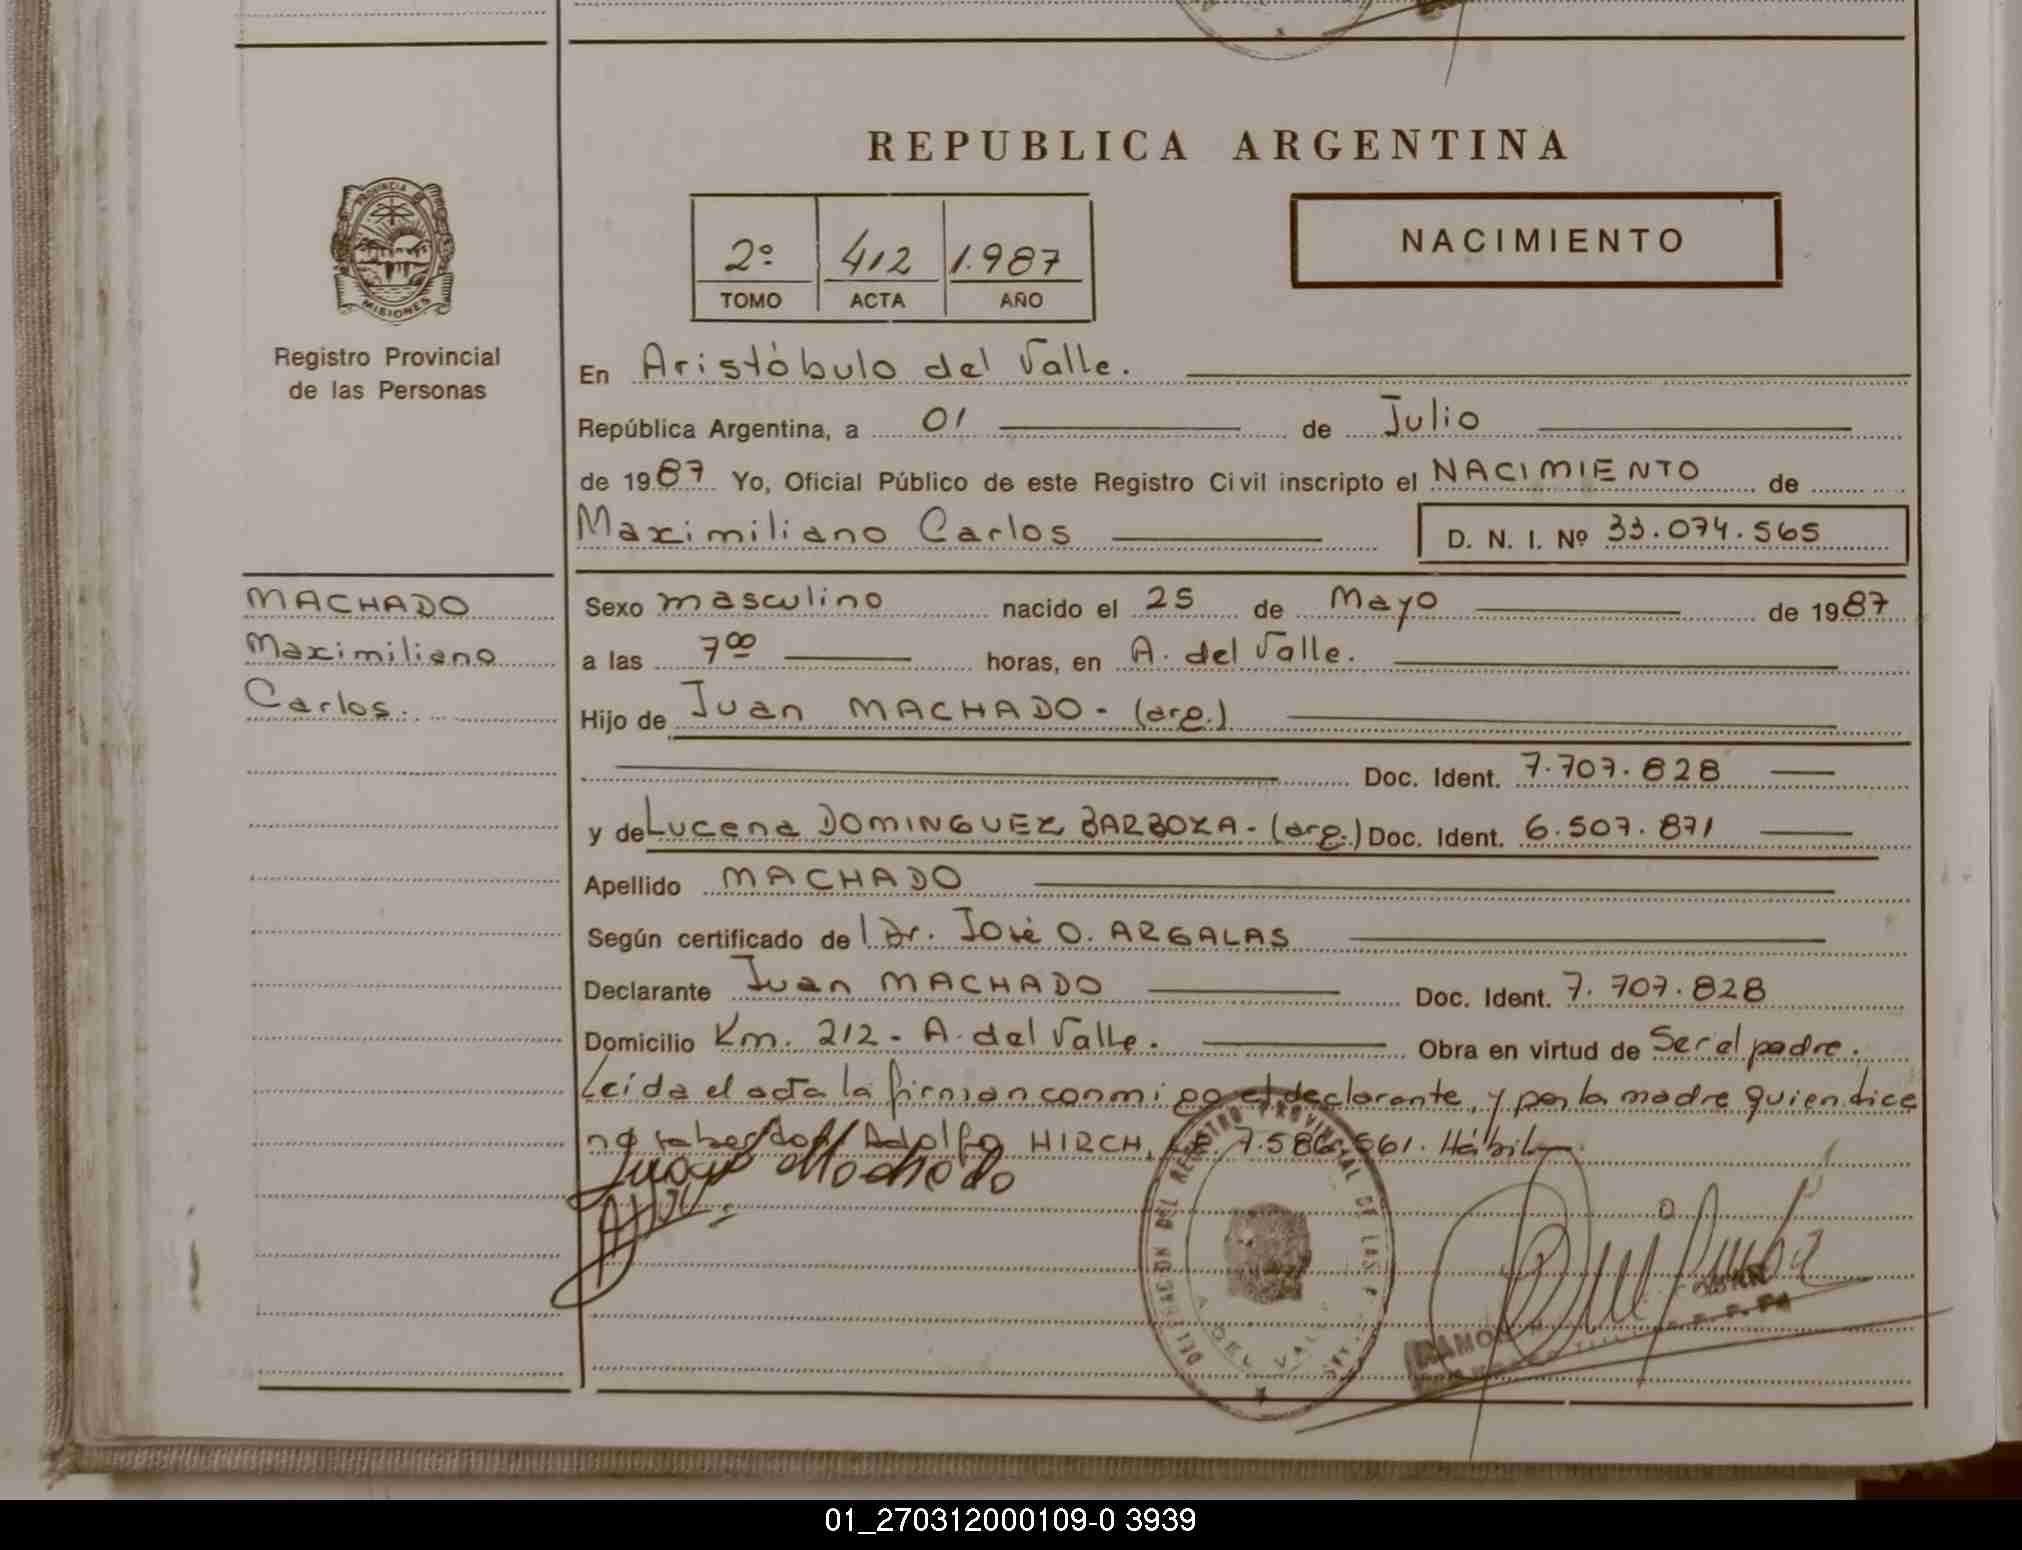 REPUBLICA ARGENTINA
PROVINCIA DE
MISIONES
Registro Provincial
de las Personas
2º 412 1.987
TOMO ACTA AÑO
NACIMIENTO
En Aristóbulo del Valle.
República Argentina, a 01 de Julio
de 1987 Yo, Oficial Público de este Registro Civil inscripto el NACIMIENTO de
Maximiliano Carlos D. N. I. Nº 33.074.565
MACHADO
Maximiliano
Carlos.
Sexo masculino nacido el 25 de Mayo de 1987
a las 7 00 horas, en A. del Valle.
Hijo de Juan MACHADO - (arg.)
Doc. Ident. 7.707.828
y de Lucena DOMINGUEZ BARBOZA - (arg.) Doc. Ident. 6.507.871
Apellido MACHADO
Según certificado de l Dr. José O. ARGALAS
Declarante Juan MACHADO Doc. Ident. 7.707.828
Domicilio Km. 212 - A. del Valle. Obra en virtud de Ser el padre.
Leída el acta la firman conmigo el declarante, y por la madre quien dice
no saber Adolfo HIRCH, 7.586.561. Hábil
Juan Machado
DEL REGISTRO PROVINCIAL DE LAS
A. DEL VALLE
RAMON
01_270312000109-0 3939